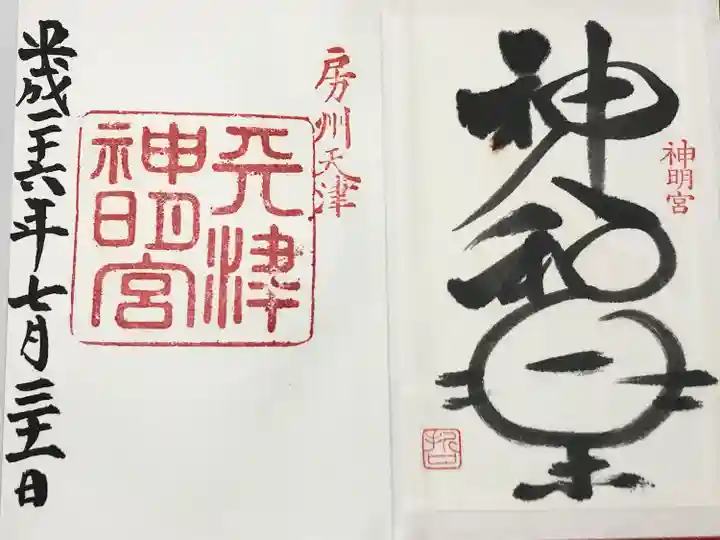 神明宮
神和
房州天津
天津
神明宮
平成二十六年七月三十一日